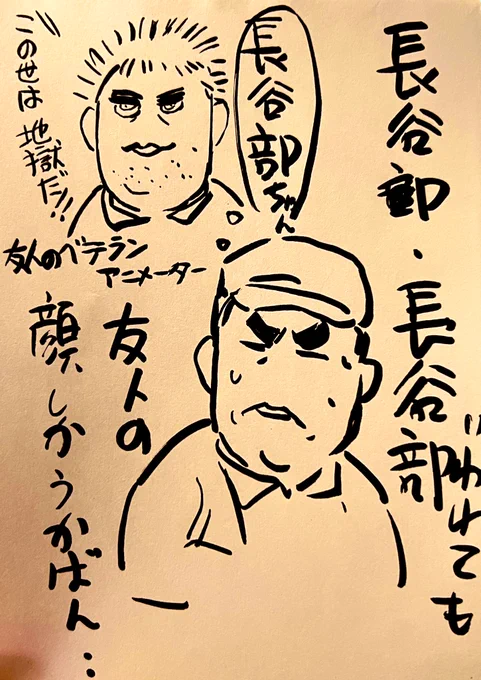 長谷部・長谷部
いわれても
長谷部ちゃん
この世は地獄だッ!!
友人のベテラン
アニメーター
友人の
顔しかうかばん…